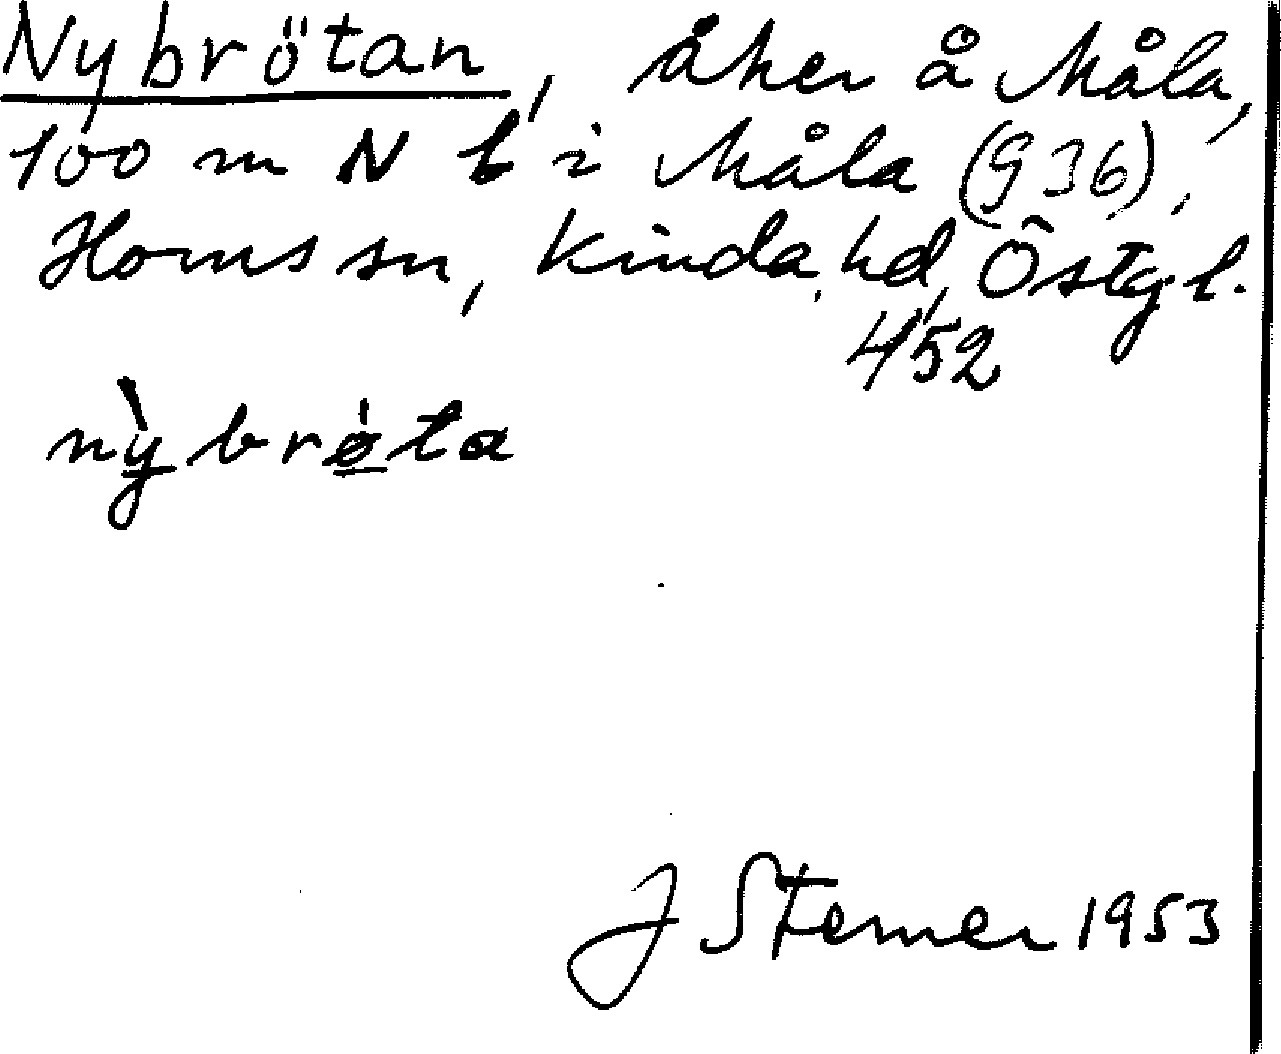 Nybrötan, åker å Måla,
100 m N b i Måla (936),
Horns sn, Kinda hd, Östgl.
452
nỳbrøta
J Sterner 1953